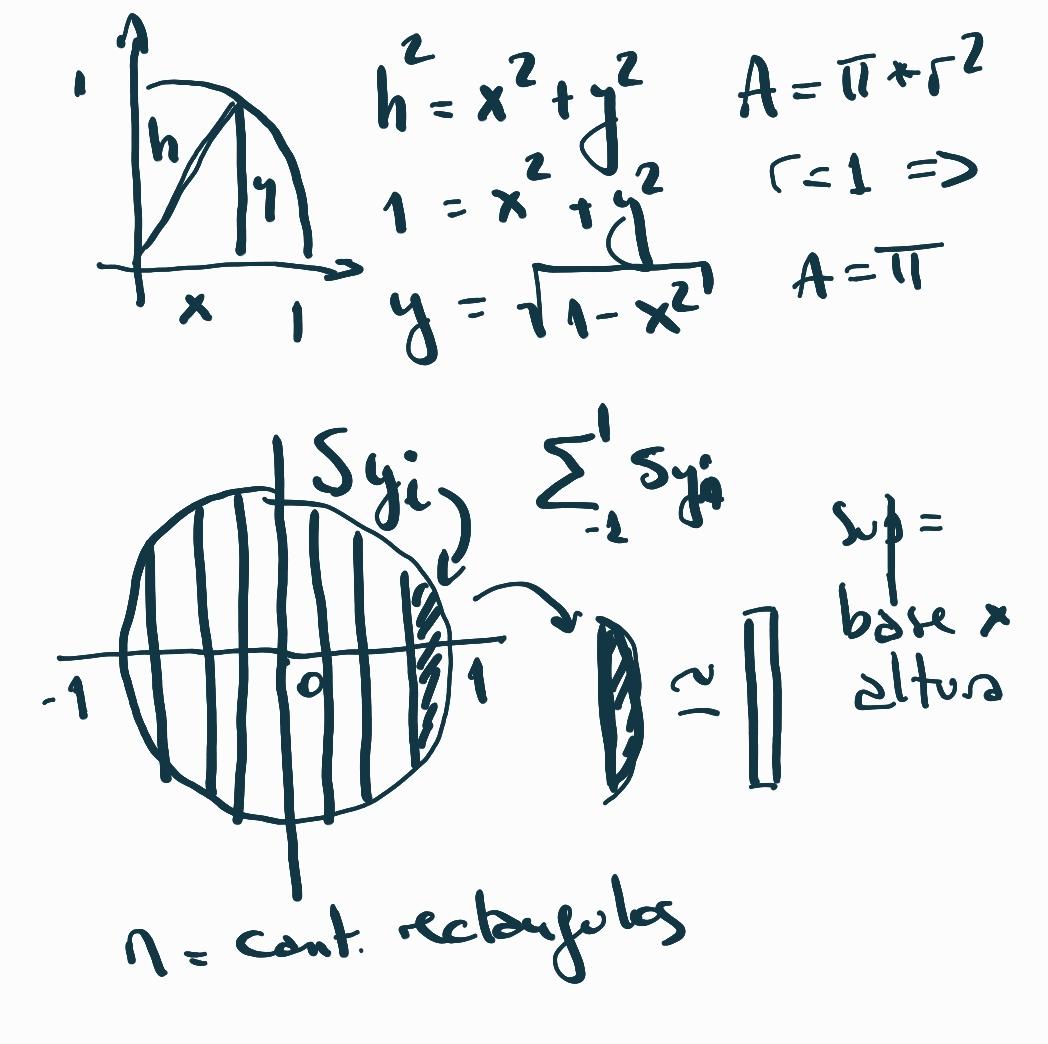 1
h
y
x
1
h² = x² + y²
1 = x² + y²
y = √(1 - x²)
A = π * r²
r = 1 =>
A = π
Syi
-1
0
1
∑
1
-1
Syi
≃
sup =
base x
altura
n = cant. rectangulos